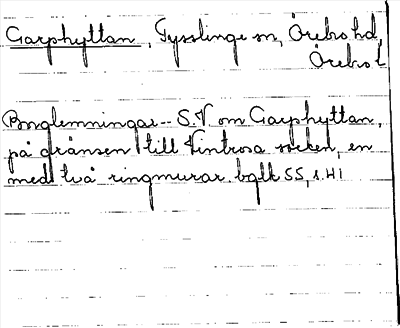 Garphyttan, Tysslinge sn, Örebro hd,
Örebro l
Borglemningar -- S.V. om Garphyttan,
på gränsen till Vintrosa socken, en
med två ringmurar. bglt SS, s. 41